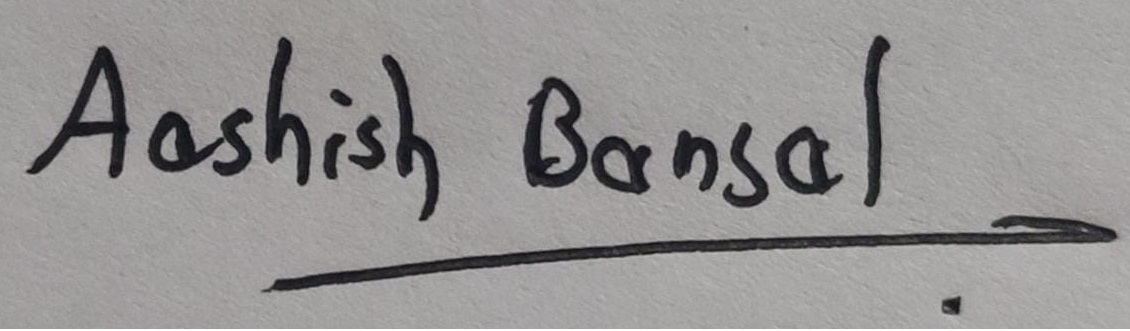 Aashish Bansal